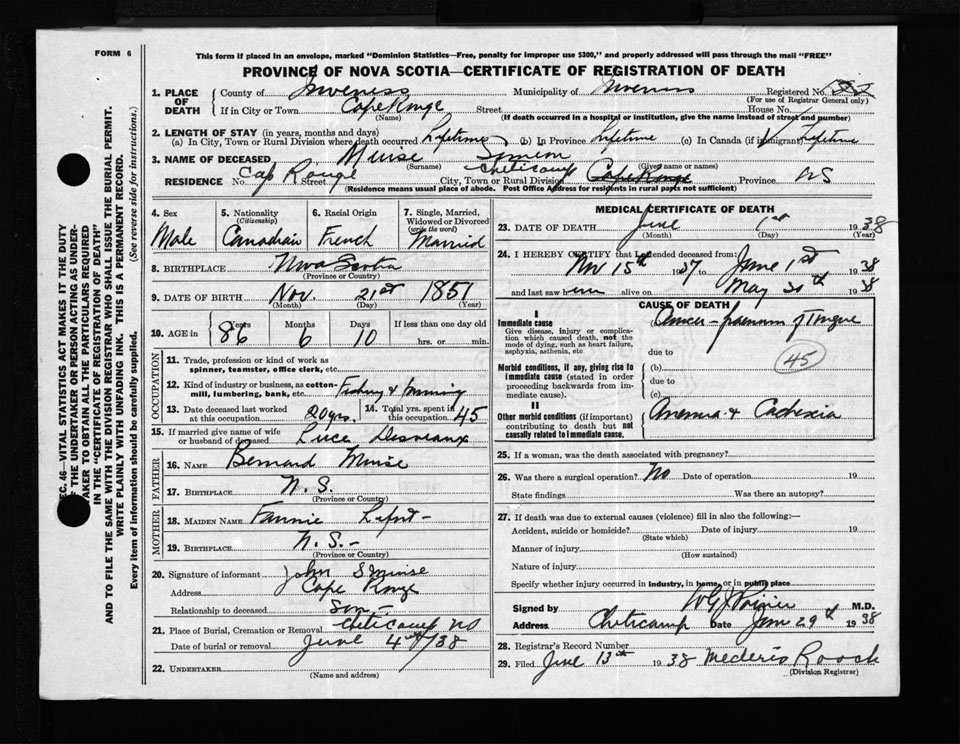 FORM 6
This form if placed in an envelope, marked "Dominion Statistics—Free, penalty for improper use $300," and properly addressed will pass through the mail "FREE"
PROVINCE OF NOVA SCOTIA—CERTIFICATE OF REGISTRATION OF DEATH
1. PLACE OF DEATH County of Inverness Municipality of Inverness Registered No.
(For use of Registrar General only)
If in City or Town Cape Rouge Street House No.
(Name) (If death occurred in a hospital or institution, give the name instead of street and number)
2. LENGTH OF STAY (in years, months and days)
(a) In City, Town or Rural Division where death occurred Lifetime (b) In Province Lifetime (c) In Canada (if immigrant) Lifetime
3. NAME OF DECEASED Muise Simeon
(Surname) (Given name or names)
RESIDENCE No. Cap Rouge Street City, Town or Rural Division Cheticamp Cape Rouge Province NS
(Residence means usual place of abode. Post Office Address for residents in rural parts not sufficient)
4. Sex Male
5. Nationality (Citizenship) Canadian
6. Racial Origin French
7. Single, Married, Widowed or Divorced (write the word) Married
8. BIRTHPLACE Nova Scotia
(Province or Country)
9. DATE OF BIRTH Nov. 21st 1851
(Month) (Day) (Year)
10. AGE in Years 86 Months 6 Days 10 If less than one day old hrs. or min.
OCCUPATION
11. Trade, profession or kind of work as spinner, teamster, office clerk, etc.
12. Kind of industry or business, as cotton-mill, lumbering, bank, etc. Fishing & Farming
13. Date deceased last worked at this occupation 20 yrs. 14. Total yrs. spent in this occupation 45
15. If married give name of wife or husband of deceased Luce Desveaux
FATHER
16. NAME Bernard Muise
17. BIRTHPLACE N.S.
(Province or Country)
MOTHER
18. MAIDEN NAME Fannie Lefort
19. BIRTHPLACE N.S.
(Province or Country)
20. Signature of informant John S Muise
Address Cape Rouge
Relationship to deceased Son
21. Place of Burial, Cremation or Removal Cheticamp NS
Date of burial or removal June 4th/38
22. UNDERTAKER
(Name and address)
MEDICAL CERTIFICATE OF DEATH
23. DATE OF DEATH June 1st 1938
(Month) (Day) (Year)
24. I HEREBY CERTIFY that I attended deceased from:
Nov 15th 1937 to June 1st 1938
and last saw him alive on May 30th 1938
CAUSE OF DEATH
I
Immediate cause
Give disease, injury or complication which caused death, not the mode of dying, such as heart failure, asphyxia, asthenia, etc.
Cancer - fraenum of Tongue
due to
45
Morbid conditions, if any, giving rise to immediate cause (stated in order proceeding backwards from immediate cause).
(b)
due to
(c)
II
Other morbid conditions (if important) contributing to death but not causally related to immediate cause.
Anemia & Cachexia
25. If a woman, was the death associated with pregnancy?
26. Was there a surgical operation? No Date of operation 19
State findings Was there an autopsy?
27. If death was due to external causes (violence) fill in also the following:—
Accident, suicide or homicide? Date of injury 19
(State which)
Manner of injury
(How sustained)
Nature of injury
Specify whether injury occurred in industry, in home, or in public place
Signed by W G J Poirier M.D.
Address Cheticamp Date June 29th 1938
28. Registrar's Record Number
29. Filed June 13th 1938 Mederic Roach
(Division Registrar)
SEC. 46—VITAL STATISTICS ACT MAKES IT THE DUTY
OF THE UNDERTAKER OR PERSON ACTING AS UNDERTAKER TO OBTAIN ALL THE PARTICULARS REQUIRED
IN THE "CERTIFICATE OF REGISTRATION OF DEATH"
AND TO FILE THE SAME WITH THE DIVISION REGISTRAR WHO SHALL ISSUE THE BURIAL PERMIT.
WRITE PLAINLY WITH UNFADING INK. THIS IS A PERMANENT RECORD.
Every item of information should be carefully supplied. (See reverse side for instructions.)